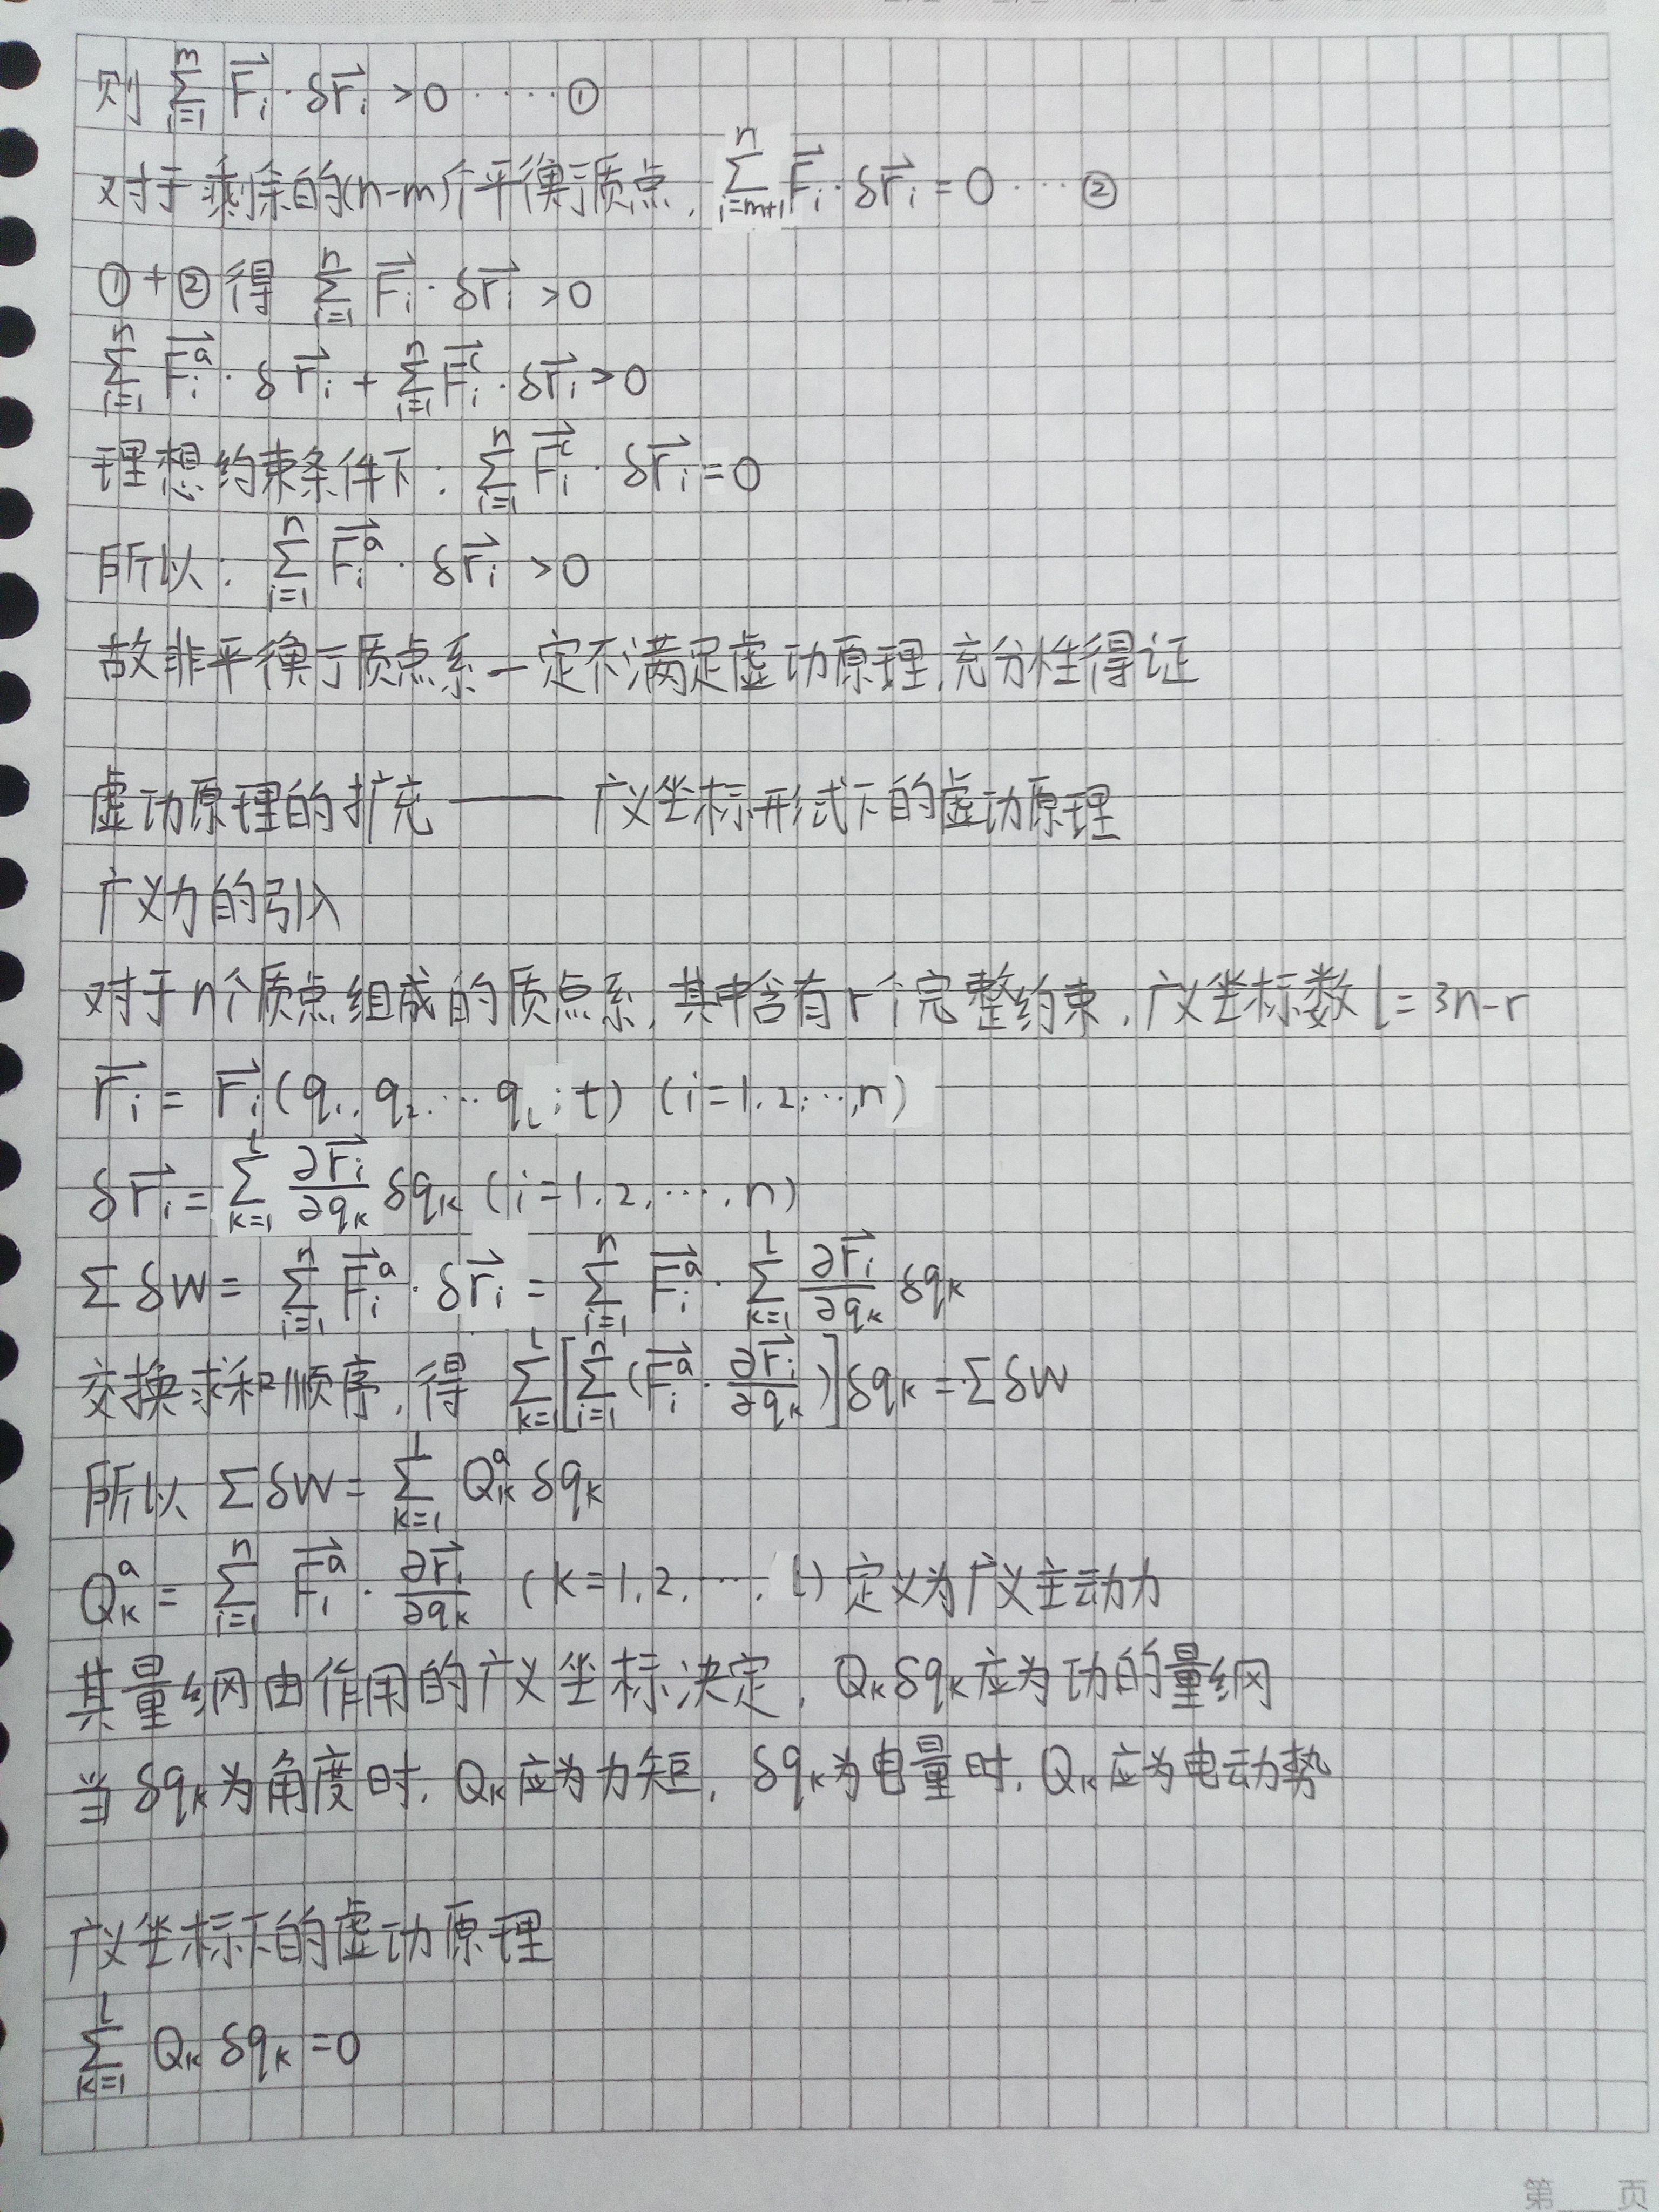 则 $\sum_{i=1}^{m} \vec{F_i} \cdot \delta \vec{r_i} > 0$ ····①
对于剩余的(n-m)个平衡质点, $\sum_{i=m+1}^{n} \vec{F_i} \cdot \delta \vec{r_i} = 0$ ···②
①+②得 $\sum_{i=1}^{n} \vec{F_i} \cdot \delta \vec{r_i} > 0$
$\sum_{i=1}^{n} \vec{F_i^a} \cdot \delta \vec{r_i} + \sum_{i=1}^{n} \vec{F_i^c} \cdot \delta \vec{r_i} > 0$
理想约束条件下: $\sum_{i=1}^{n} \vec{F_i^c} \cdot \delta \vec{r_i} = 0$
所以: $\sum_{i=1}^{n} \vec{F_i^a} \cdot \delta \vec{r_i} > 0$
故非平衡质点系一定不满足虚功原理,充分性得证
虚功原理的扩充——广义坐标形式下的虚功原理
广义力的引入
对于n个质点组成的质点系,其中含有r个完整约束,广义坐标数 l=3n-r
$\vec{r_i} = \vec{r_i}(q_1, q_2, \cdots q_l; t)$ (i=1,2,···,n)
$\delta \vec{r_i} = \sum_{k=1}^{l} \frac{\partial \vec{r_i}}{\partial q_k} \delta q_k$ (i=1,2,···,n)
$\sum \delta W = \sum_{i=1}^{n} \vec{F_i^a} \cdot \delta \vec{r_i} = \sum_{i=1}^{n} \vec{F_i^a} \cdot \sum_{k=1}^{l} \frac{\partial \vec{r_i}}{\partial q_k} \delta q_k$
交换求和顺序,得 $\sum_{k=1}^{l} \left[ \sum_{i=1}^{n} (\vec{F_i^a} \cdot \frac{\partial \vec{r_i}}{\partial q_k}) \right] \delta q_k = \sum \delta W$
所以 $\sum \delta W = \sum_{k=1}^{l} Q_k^a \delta q_k$
$Q_k^a = \sum_{i=1}^{n} \vec{F_i^a} \cdot \frac{\partial \vec{r_i}}{\partial q_k}$ (k=1,2,···,l) 定义为广义主动力
其量纲由作用的广义坐标决定, $Q_k \delta q_k$ 应为功的量纲
当 $\delta q_k$ 为角度时, $Q_k$ 应为力矩, $\delta q_k$ 为电量时, $Q_k$ 应为电动势
广义坐标下的虚功原理
$\sum_{k=1}^{l} Q_k \delta q_k = 0$
第 页